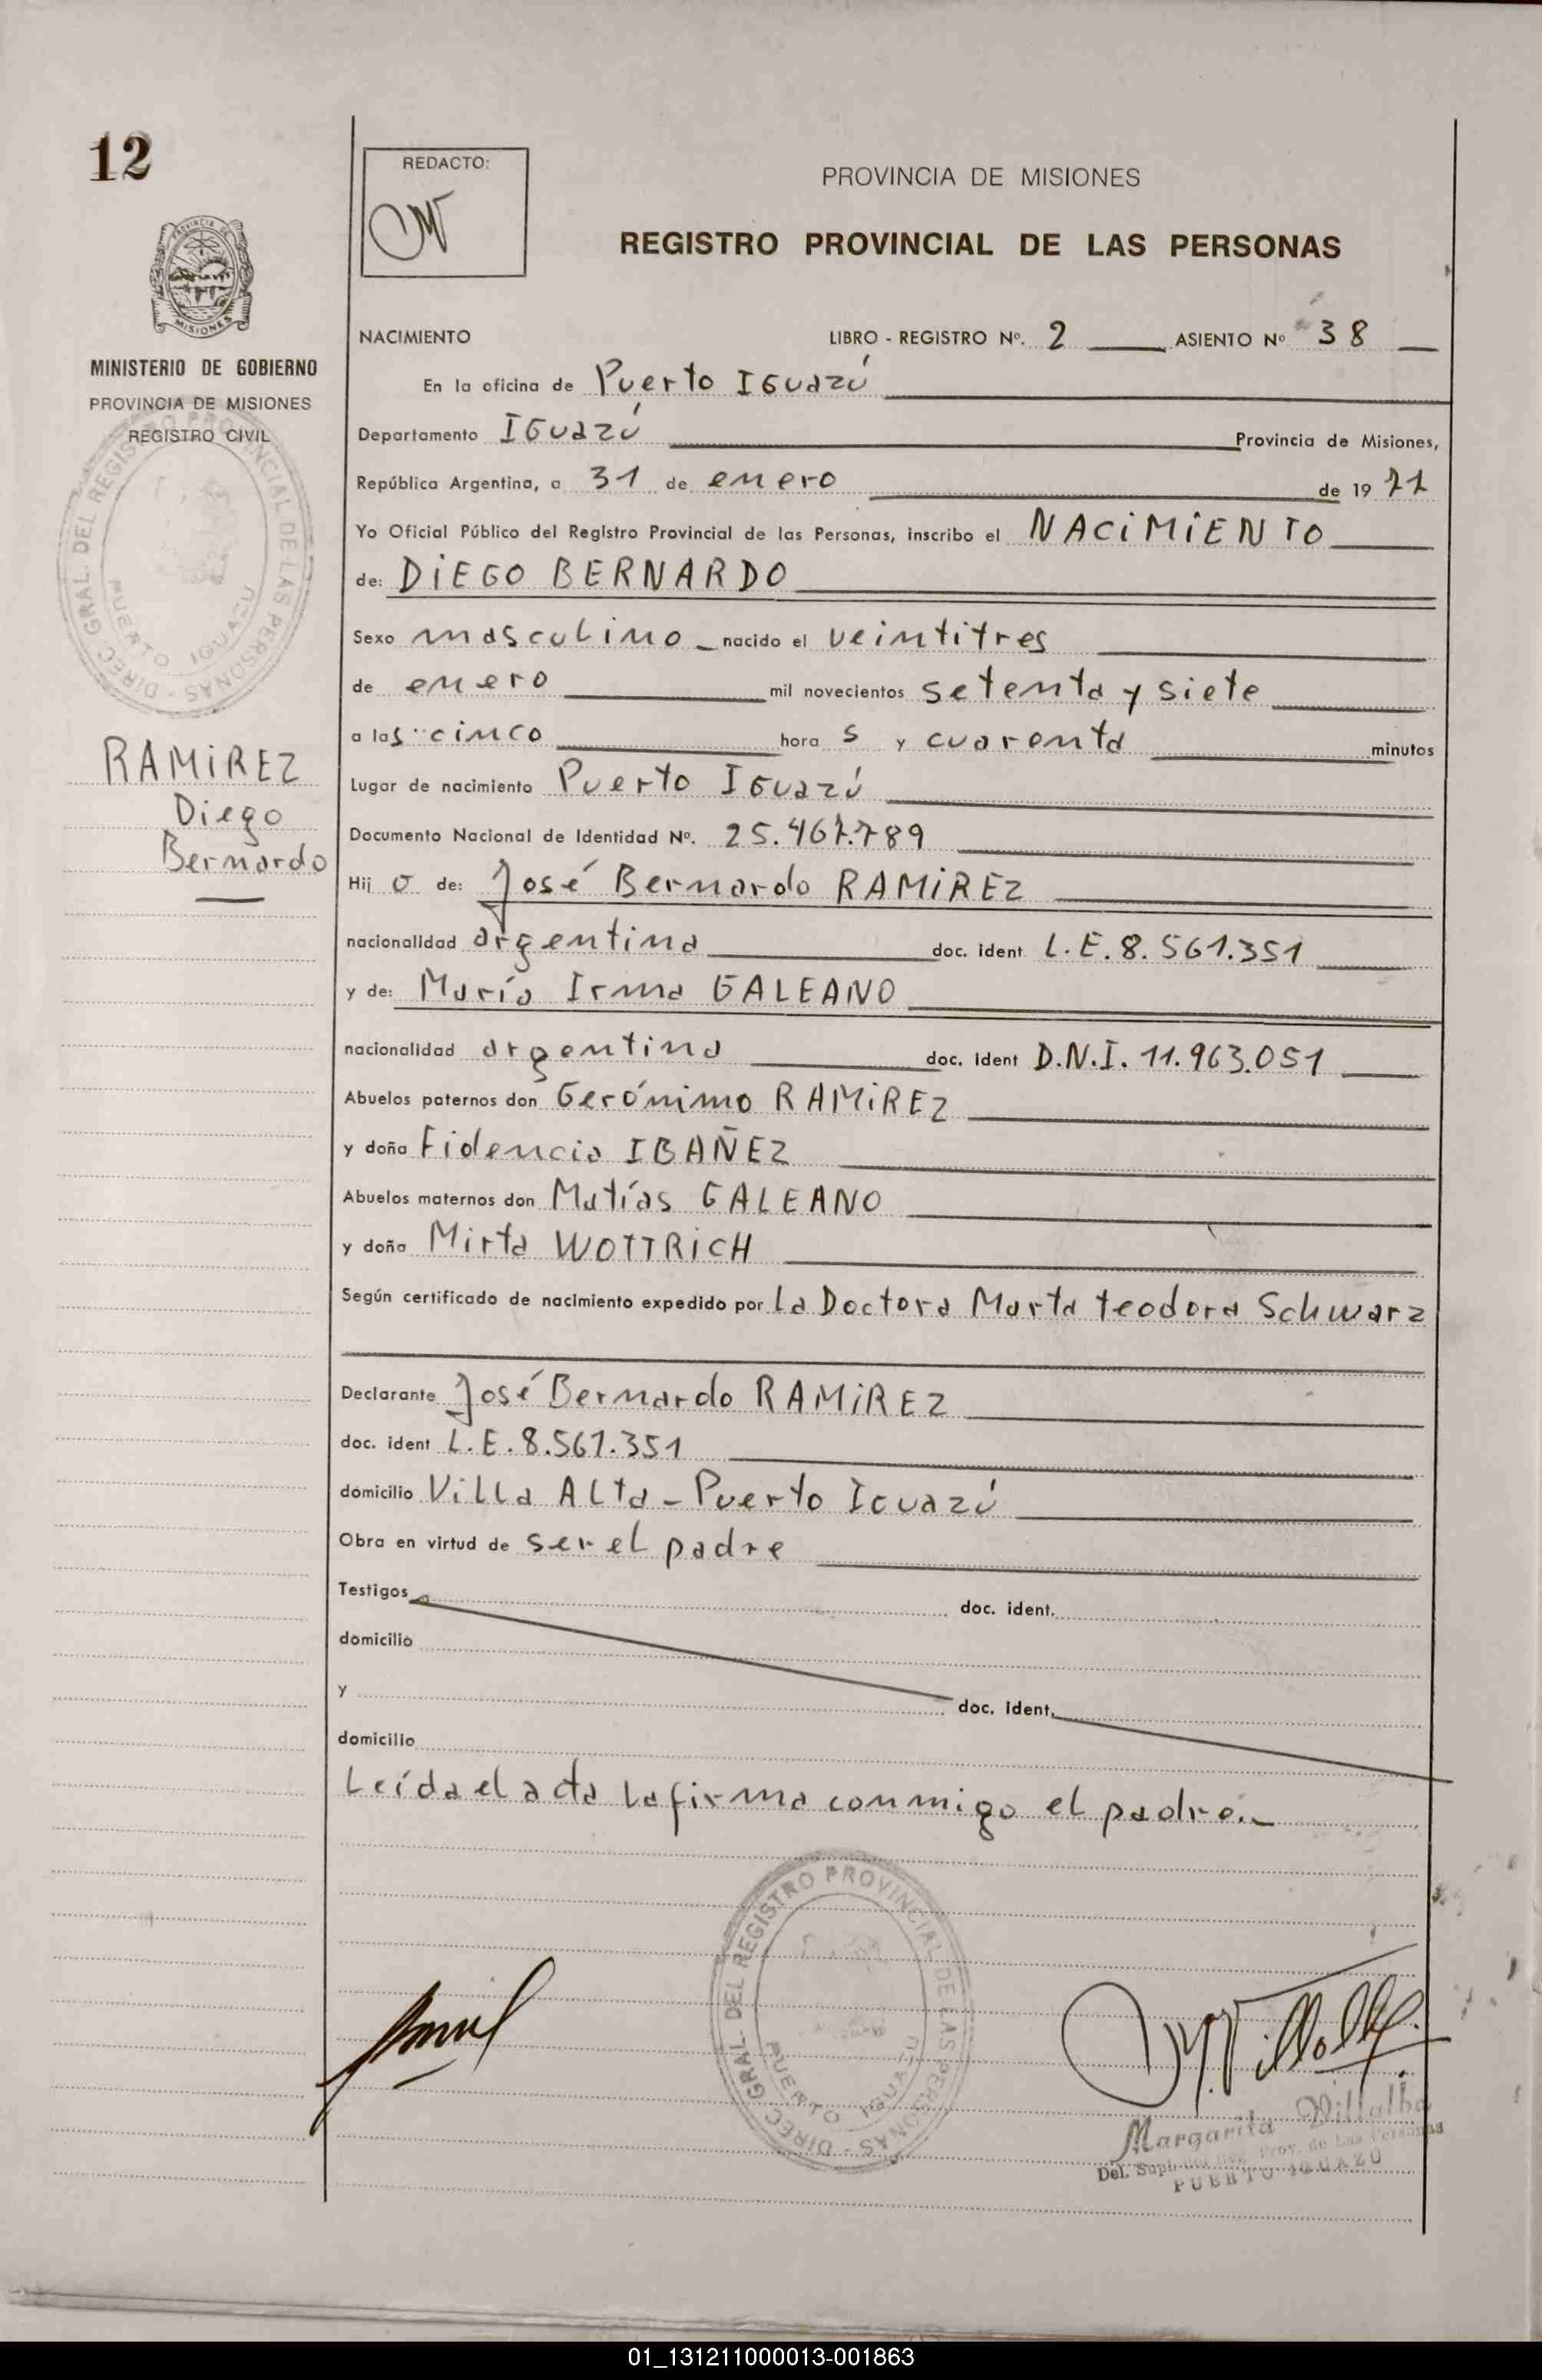 12
REDACTO:
PROVINCIA DE MISIONES
REGISTRO PROVINCIAL DE LAS PERSONAS
MISIONES
MINISTERIO DE GOBIERNO
PROVINCIA DE MISIONES
REGISTRO CIVIL
DIREC. GRAL. DEL REGISTRO PROVINCIAL DE LAS PERSONAS
PUERTO IGUAZU
RAMIREZ
Diego
Bernardo
NACIMIENTO LIBRO - REGISTRO Nº. 2 ASIENTO Nº 38
En la oficina de Puerto Iguazú
Departamento Iguazú Provincia de Misiones,
República Argentina, a 31 de enero de 19 77
Yo Oficial Público del Registro Provincial de las Personas, inscribo el NACIMIENTO
de: DIEGO BERNARDO
Sexo masculino nacido el veintitres
de enero mil novecientos setenta y siete
a las cinco hora s y cuarenta minutos
Lugar de nacimiento Puerto Iguazú
Documento Nacional de Identidad Nº. 25.467.789
Hij o de: José Bernardo RAMIREZ
nacionalidad argentina doc. ident L.E. 8.561.351
y de: María Irma GALEANO
nacionalidad argentina doc. ident D.N.I. 11.963.051
Abuelos paternos don Gerónimo RAMIREZ
y doña Fidencia IBAÑEZ
Abuelos maternos don Matías GALEANO
y doña Mirta WOTTRICH
Según certificado de nacimiento expedido por la Doctora Marta teodora Schwarz
Declarante José Bernardo RAMIREZ
doc. ident L.E. 8.561.351
domicilio Villa Alta - Puerto Iguazú
Obra en virtud de ser el padre
Testigos doc. ident.
domicilio
y doc. ident.
domicilio
Leída el acta la firma conmigo el padre.-
DIREC. GRAL. DEL REGISTRO PROVINCIAL DE LAS PERSONAS
PUERTO IGUAZU
Margarita Villalba
Del. Supl. del Reg. Prov. de Las Personas
PUERTO IGUAZU
01_131211000013-001863